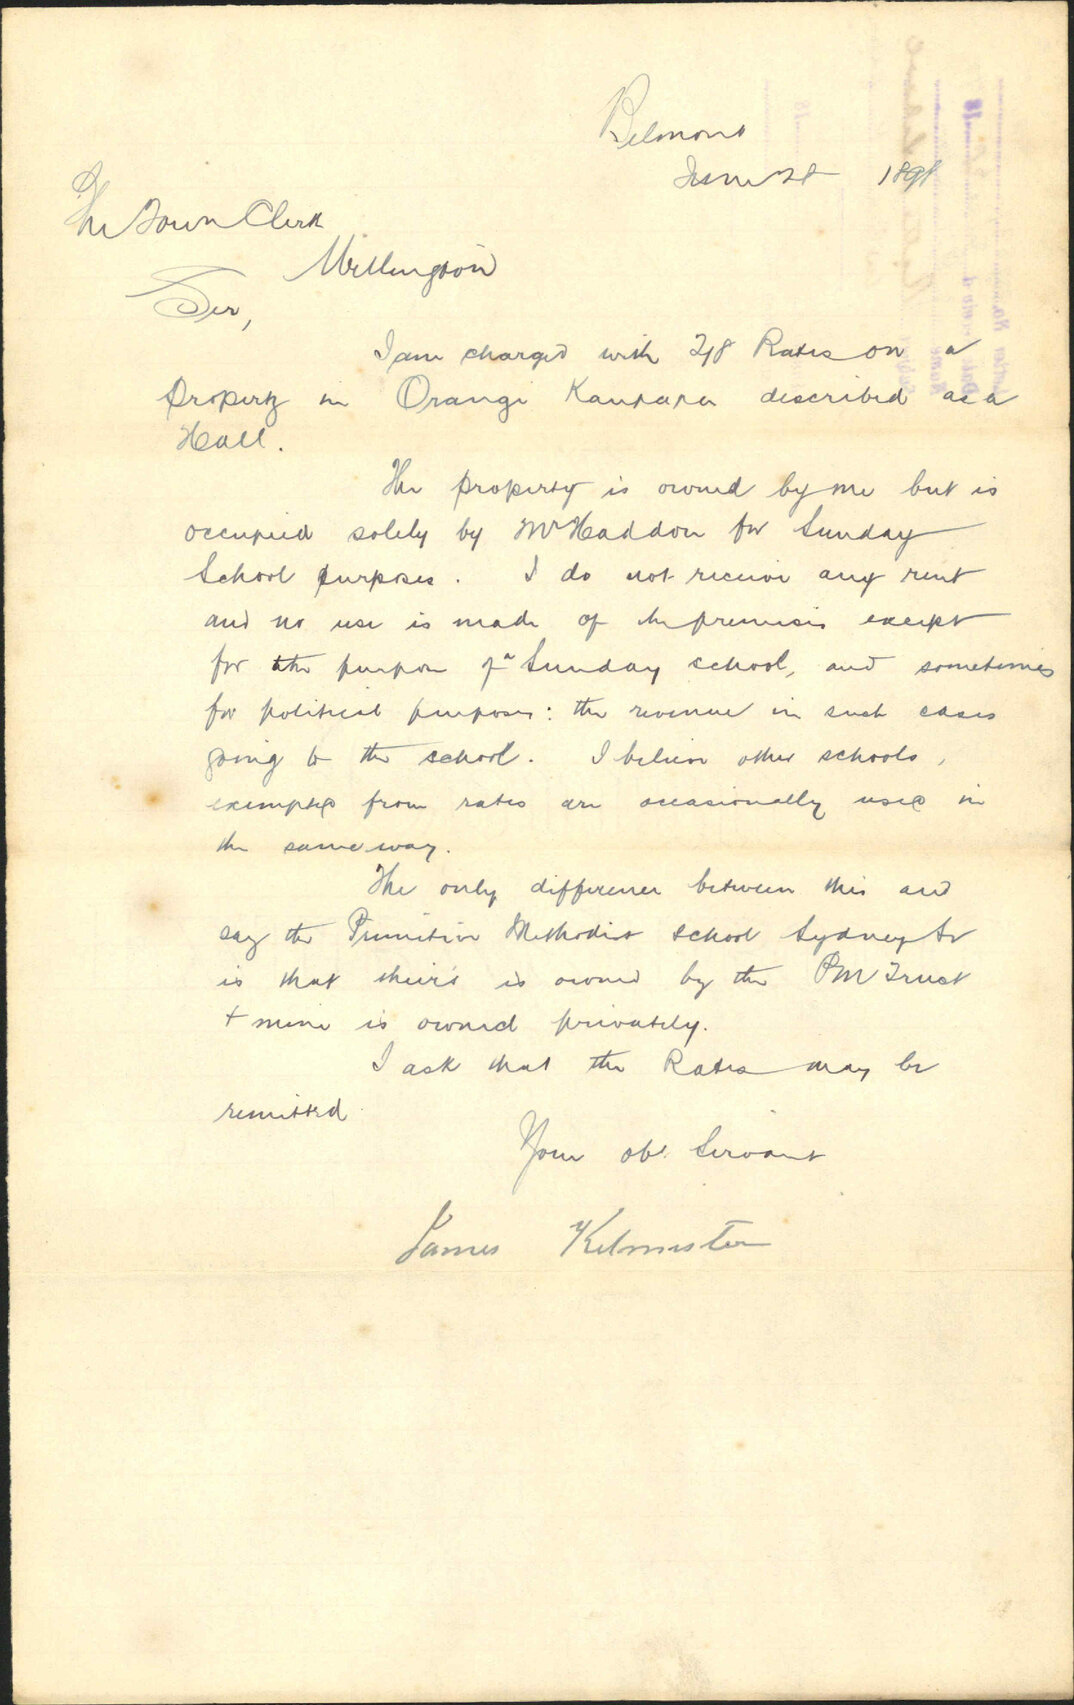 Belmont
June 28 1898
The Town Clerk
Wellington
Sir,
I am charged with Rates on a
property in Orangi Kaupapa described as a
Hall.
The property is owned by me but is
occupied solely by Mr Haddon for Sunday
School purposes. I do not receive any rent
and no use is made of the premises except
for the purpose of a Sunday school, and sometimes
for political purposes: the revenue in such cases
going to the school. I believe other schools,
exempted from rates are occasionally used in
the same way.
The only difference between this and
say the Primitive Methodist school Sydney St
is that theirs is owned by the PM Trust
+ mine is owned privately.
I ask that the Rates may be
remitted
Your obt. Servant
James Kilmister